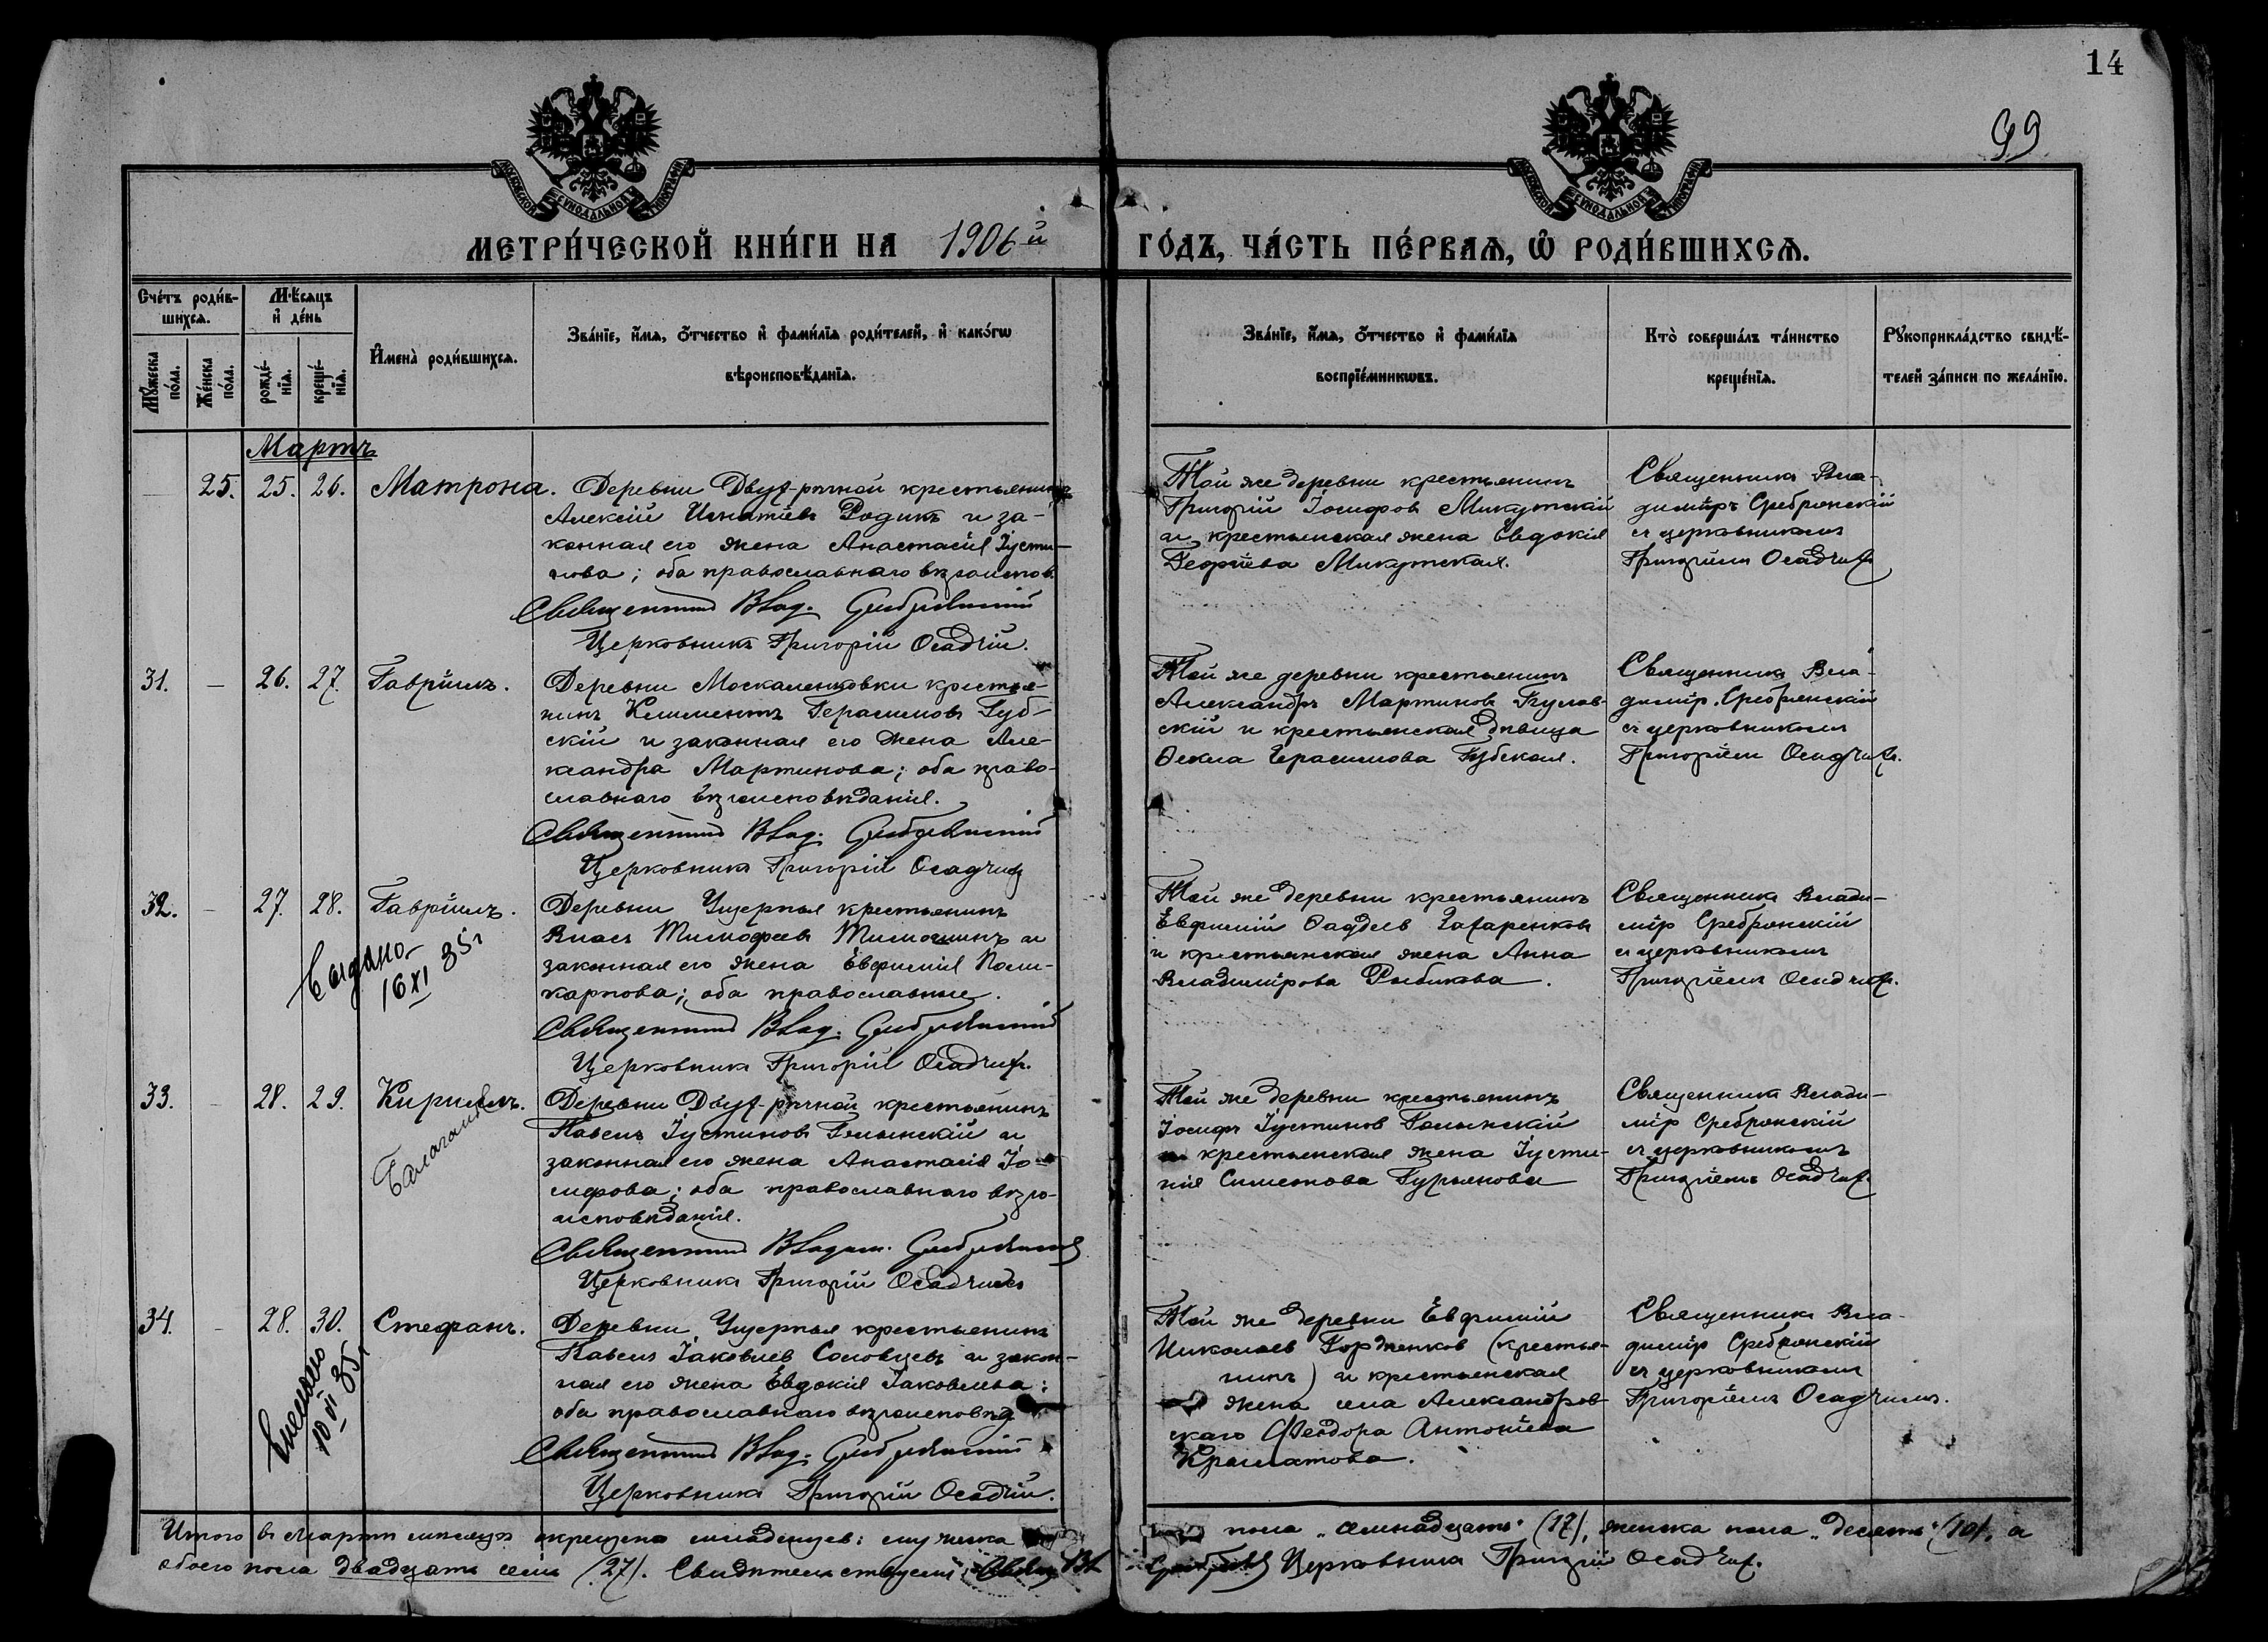 14
99
МОСКОВСКОЙ СѴНОДАЛЬНОЙ ТИПОГРАФІИ
МОСКОВСКОЙ СѴНОДАЛЬНОЙ ТИПОГРАФІИ
МЕТРИ́ЧЕСКОЙ КНИ́ГИ НА 1906й ГО́ДЪ, ЧА́СТЬ ПЕ́РВАѦ, Ѡ҆ РОДИ́ВШИХСѦ.
Сче́тъ роди́в-
шихсѧ.
Мꙋ́жеска
по́ла.
Же́нска
по́ла.
Мѣ́сѧцъ
и҆ де́нь
рожде́-
нїѧ.
креще́-
нїѧ.
И҆мена̀ роди́вшихсѧ.
Зва́нїе, и҆́мѧ, ѻ҆́тчество и҆ фами́лїѧ роди́телей, и҆ како́гѡ
вѣроисповѣ́данїѧ.
Зва́нїе, и҆́мѧ, ѻ҆́тчество и҆ фами́лїѧ
воспрїе́мникѡвъ.
Кто̀ соверша́лъ та́инство
креще́нїѧ.
Рꙋкоприкла́дство свидѣ́-
телей за́писи по жела́нїю.
Мартъ
25. 25. 26. Матрона.
Деревни Двух-рѣчной крестьянинъ
Алексій Игнатіевъ Родикъ и за-
конная его жена Анастасія Іусти-
нова; оба православнаго вѣроиспов.
Священникъ Влад. Сребрянскій
Церковникъ Григорій Осадчій.
Той же деревни крестьянинъ
Григорій Іосифовъ Микутскій
и крестьянская жена Евдокія
Георгіева Микутская.
Священникъ Вла-
димиръ Сребрянскій
съ церковникомъ
Григоріемъ Осадчих
31. — 26. 27. Гавріилъ.
Деревни Москаленковки крестья-
нинъ Климентъ Герасимовъ Губ-
скій и законная его жена Але-
ксандра Мартинова; оба право-
славнаго вѣроисповѣданія.
Священникъ Влад. Сребрянскій
Церковникъ Григорій Осадчих
Той же деревни крестьянинъ
Александръ Мартиновъ
скій и крестьянская дѣвица
Ѳекла Герасимова Губская.
Священникъ Вла-
димір. Сребрянскій
съ церковникомъ
Григоріем Осадчих.
32. — 27. 28. Гавріилъ.
Выдано
16 XI 35г
Деревни Ущерпья крестьянинъ
Власъ Тимофеевъ Тимошинъ и
законная его жена Евфимія Поли-
карпова; оба православные.
Священникъ Влад. Сребрянскій
Церковникъ Григорій Осадчих.
Той же деревни крестьянинъ
Евфимій Фаддеевъ Захаренковъ
и крестьянская жена Анна
Владимірова Рыбикова.
Священникъ Влади-
міръ Сребрянскій
съ церковникомъ
Григоріемъ Осадчих.
33. — 28. 29. Кириллъ.
Деревни Двух-рѣчной крестьянинъ
Павелъ Іустиновъ Голынскій и
законная его жена Анастасія Іо-
сифова; оба православнаго вѣро-
исповѣданія.
Священникъ Владим. Сребрянскій
Церковникъ Григорій Осадчихъ
Той же деревни крестьянинъ
Іосифъ Іустинов Голынскій
и крестьянская жена Іусти-
нія Симеонова Гурьянова
Священникъ Влади-
міръ Сребрянскій
съ церковникомъ
Григоріемъ Осадчих.
34. — 28. 30. Стефанъ.
Внесено
10 VI 35г
Деревни Ущерпья крестьянинъ
Павелъ Іаковлев Соловцевъ и закон-
ная его жена Евдокія Іаковлева;
оба православнаго вѣроисповѣд
Священникъ Влад. Сребрянскій
Церковникъ Григорій Осадчій.
Той же деревни Евфимій
Николаев Горденков (крестья-
нинъ) и крестьянская
жена села Александров-
скаго Ѳеодора Антоніева
Священникъ Вла-
димір Сребрянскій
съ церковникомъ
Григоріемъ Осадчимъ.
Итого въ мартѣ мѣсяцѣ окрещено младенцевъ: мужеска пола „семнадцать" (17), женска пола „десять" (10), а
обоего пола двадцать семь (27). Свидѣтельствуемъ: Свящ Вл Сребрян Церковникъ Григорій Осадчих.